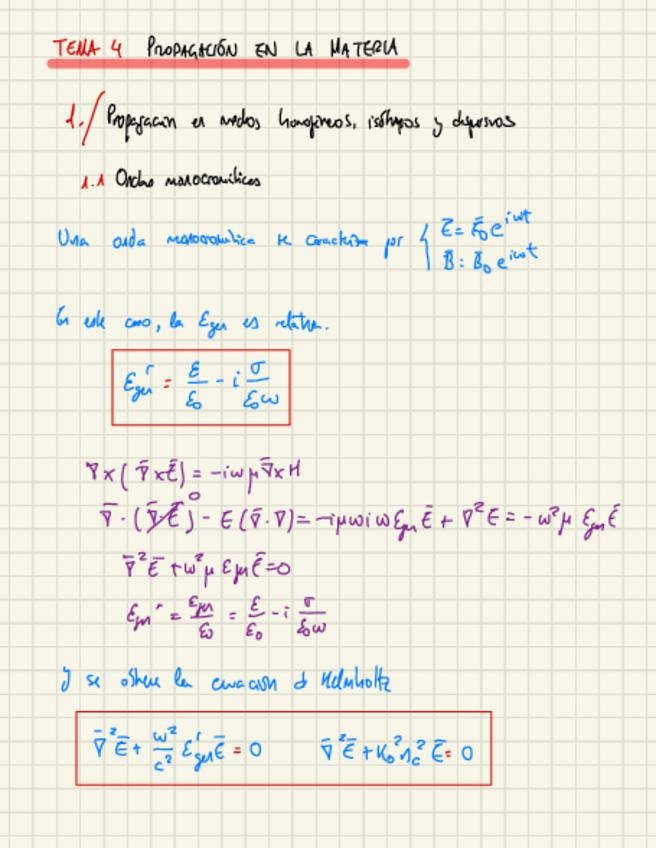 TEMA 4 PROPAGACIÓN EN LA MATERIA
1./ Propagación en medios homogéneos, isótropos y dispersivos
1.1 Ondas monocromáticas
Una onda monocromática se caracteriza por { Ē = Ē₀ e^{iωt}
B̄ : B̄₀ e^{iωt}
En este caso, la ε_gen es relativa.
ε_gen^r = ε/ε₀ - i σ/(ε₀ω)
∇×(∇̄×Ē) = -iωμ ∇̄×H
∇̄·(∇̄·Ē)⁰ - E(∇̄·∇) = -iμωiω ε_gen Ē + ∇²E = -ω²μ ε_gen Ē
∇̄²Ē + ω²μ ε_gen Ē = 0
ε_gen^r = ε_gen/ε₀ = ε/ε₀ - i σ/(ε₀ω)
y se obtiene la ecuación d Helmholtz
∇̄²Ē + ω²/c² ε_gen^r Ē = 0 ∇̄²Ē + K₀² n_c² Ē = 0